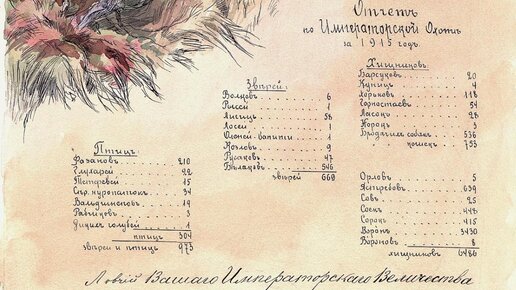 Отчетъ
по Императорской Охотѣ
за 1915 годъ.
Птицъ:
Фазановъ 210
Глухарей 22
Тетеревей 15
Сѣр. куропатокъ 34
Вальдшнеповъ 19
Рябчиковъ 3
Дикихъ голубей 1
птицъ 304
звѣрей и птицъ 973
Звѣрей:
Волковъ 6
Рысей 1
Лисицъ 58
Лосей 1
Оленей-вапити 1
Козловъ 9
Русаковъ 47
Бѣляковъ 546
звѣрей 669
Хищниковъ:
Барсуковъ 20
Куницъ 4
Хорьковъ 118
Горностаевъ 54
Ласокъ 28
Норокъ 3
Бродячихъ собакъ 536
кошекъ 753
Орловъ 5
Ястребовъ 639
Совъ 25
Соекъ 448
Сорокъ 415
Воронъ 3430
Вороновъ 8
хищниковъ 6486
Ловчій Вашего Императорскаго Величества